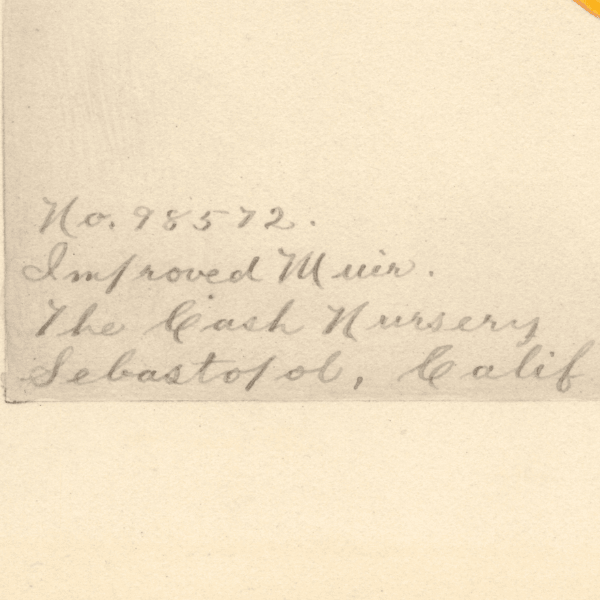 No. 98572.
Improved Muir.
The Cash Nursery
Sebastopol, Calif